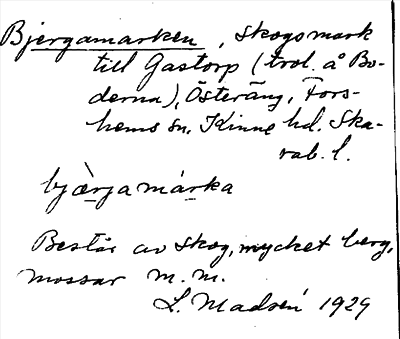 Bjergamarken, skogsmark
till Gastorp (trol. å Bo-
derna), Österäng, Fors-
hems sn. Kinne hd. Ska-
rab. l.
bjærjamárka
Består av skog, mycket berg,
mossar m. m.
L. Madsén 1929